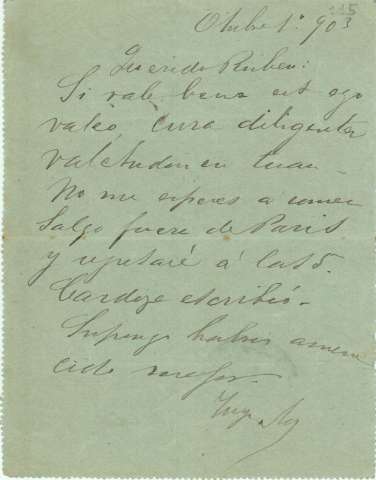 115
Otubre 1º 903
Querido Ruben:
Si vale bene est ego
valeo, cura diligenter
valetudinem tuam—
No me esperes á comer
Salgo fuera de Paris
y regresaré á las 5.
Cardoze escribió—
Supongo habrás amane
cido mejor.
Tuyo